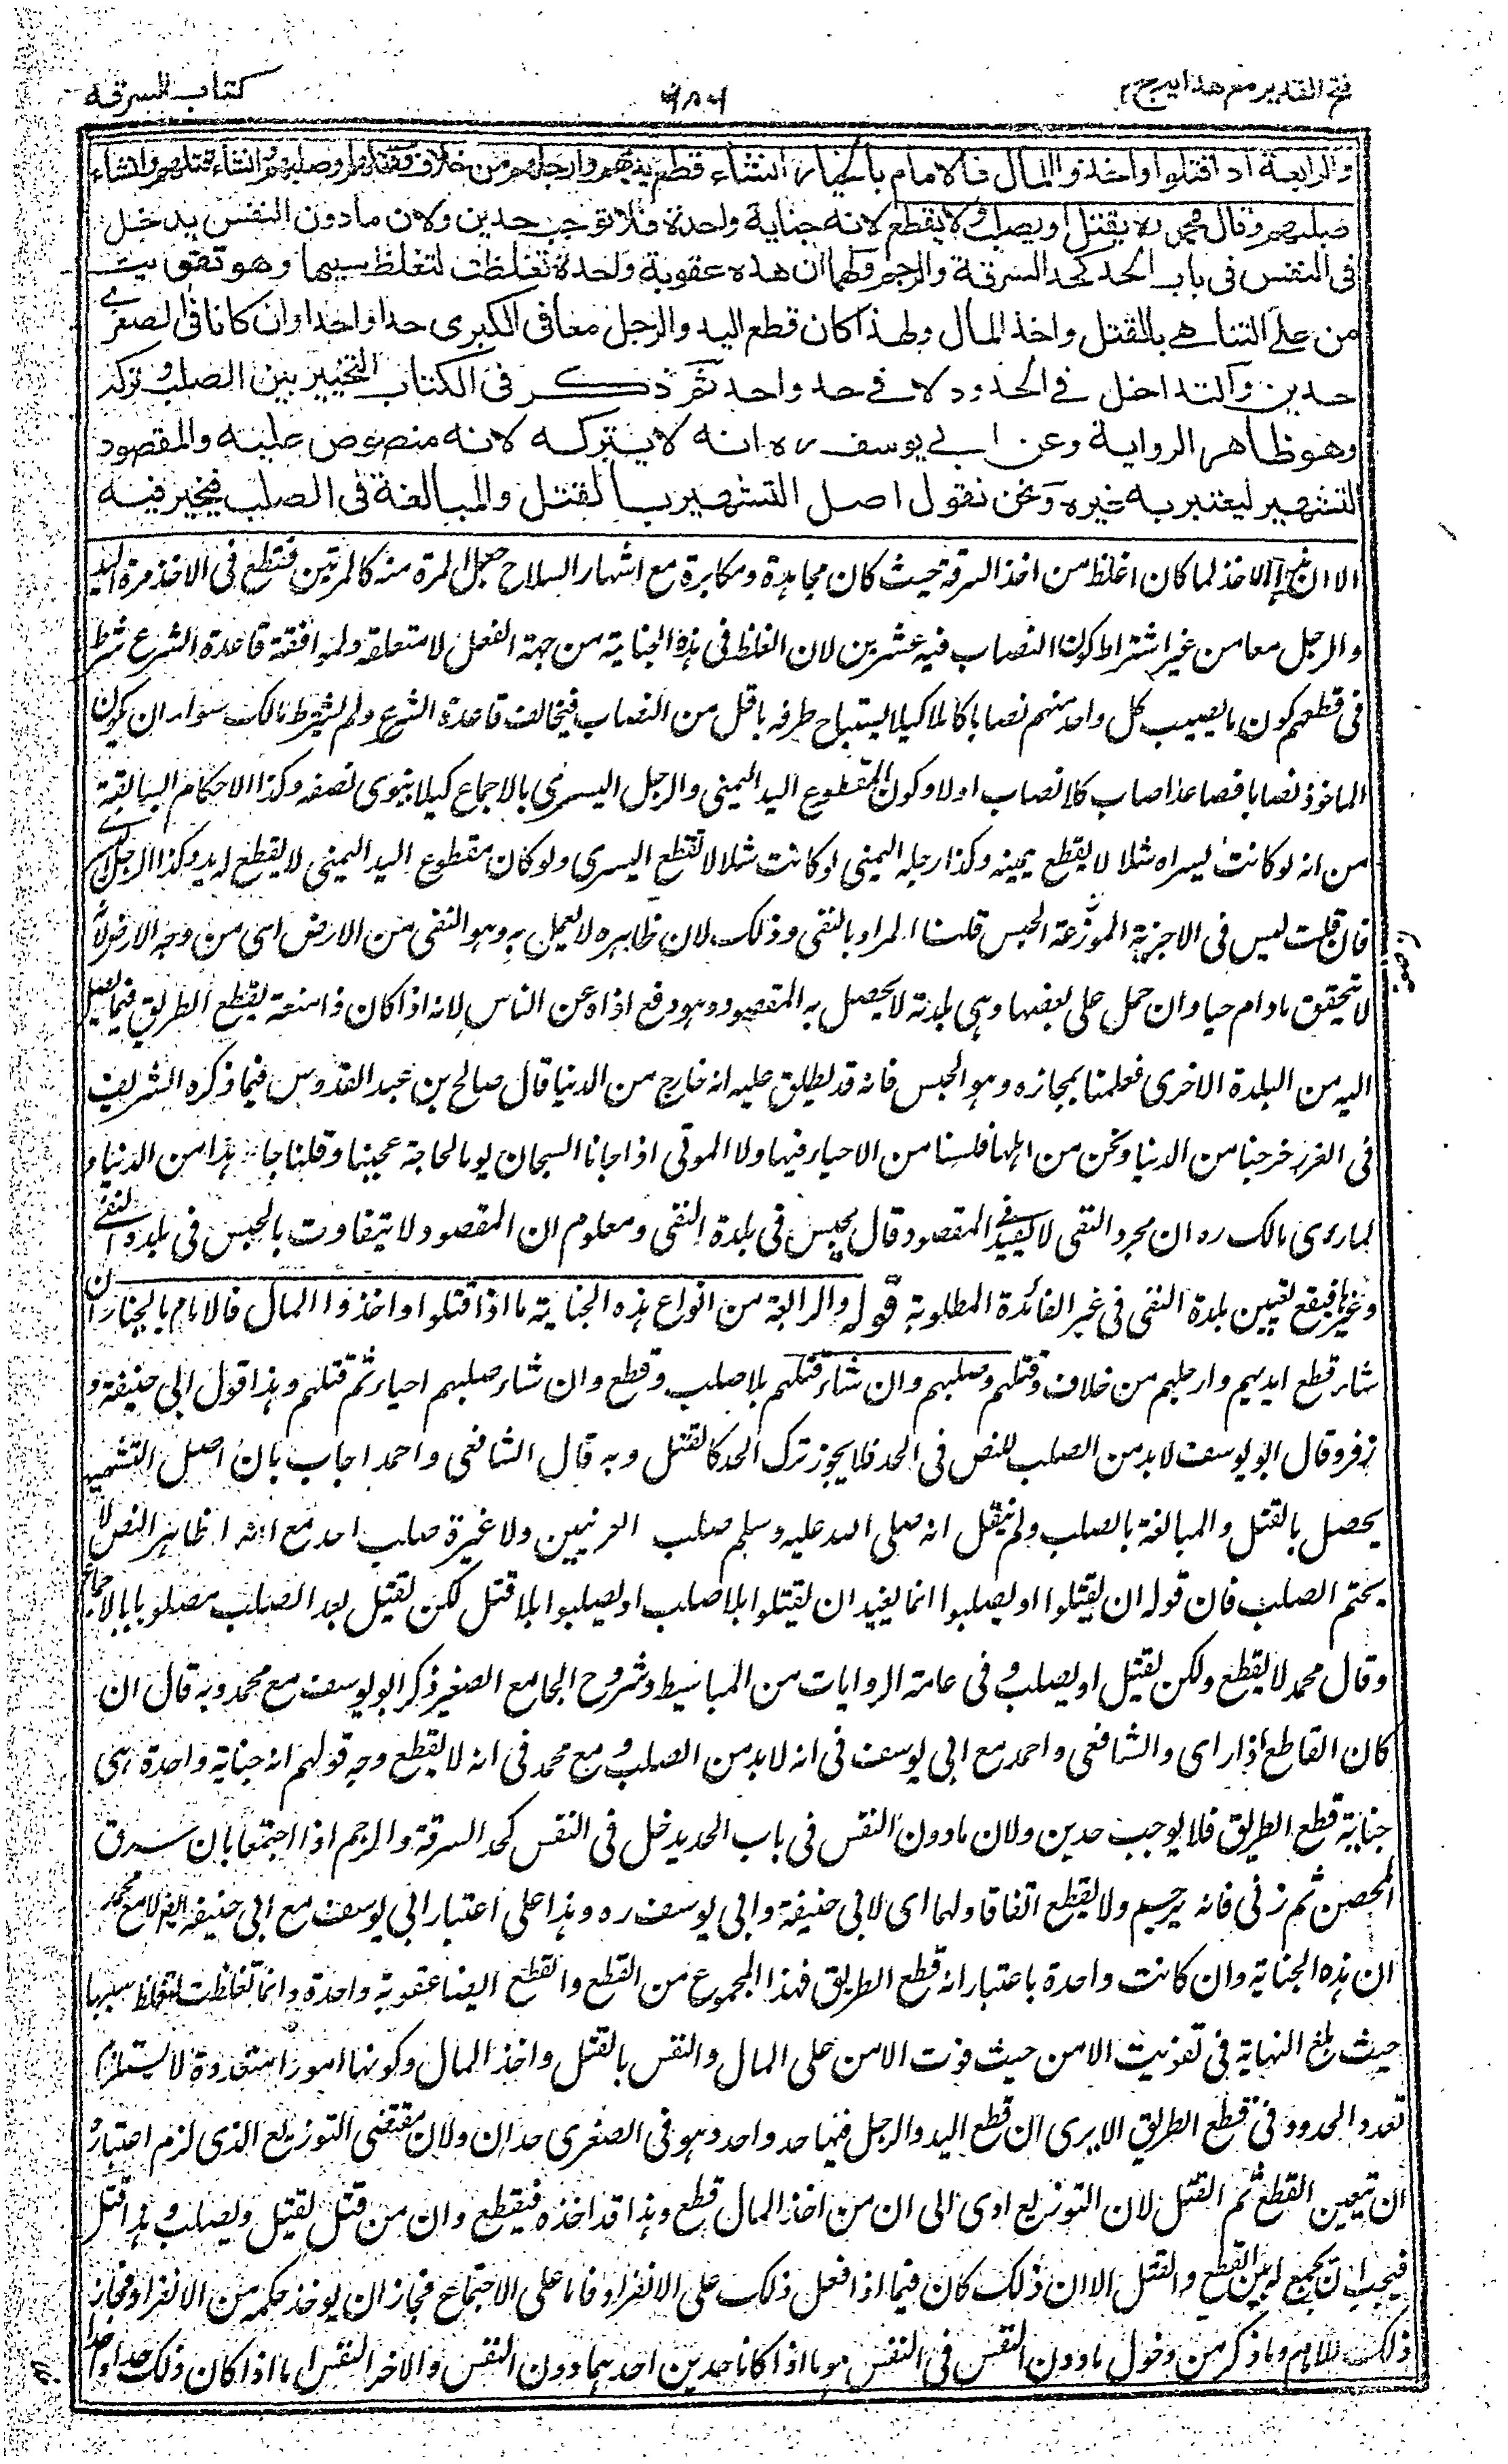 فتح القدير مع هدايه ج ٢
كتاب السرقة
والرابعة اذا قتلوا واخذوا المال فالامام بالخيار ان شاء قطع ايديهم وارجلهم من خلاف وقتلهم وصلبهم وان شاء قتلهم وان شاء
صلبهم وقال محمد ره يقتل او يصلب ولا يقطع لانه جناية واحدة فلا توجب حدين ولان مادون النفس يدخل
فى النفس فى باب الحد كحد السرقة والرجم ولهما ان هذه عقوبة واحدة تغلظت لتغلظ سببها وهو تفويت
من على التناهي بالقتل واخذ المال ولهذا كان قطع اليد والرجل معا فى الكبرى حدا واحدا وان كانا فى الصغرى
حدين والتداخل في الحدود لا في حد واحد ثم ذكر فى الكتاب التخيير بين الصلب وتركه
وهو ظاهر الرواية وعن ابي يوسف ره انه لا يتركه لانه منصوص عليه والمقصود
التشهير ليعتبر به غيره ونحن نقول اصل التشهير بالقتل والمبالغة فى الصلب فيخير فيه
الا ان هذا الاخذ لما كان اغلظ من اخذ السرقة حيث كان مجاهرة ومكابرة مع اشهار السلاح جعل المرة منه كالمرتين فتقطع فى الاخذ مرة اليد
والرجل معا من غير اشتراط كون النصاب فيه عشرين لان الغلظ فى هذه الجناية من جهة الفعل لا متعلقه ولموافقة قاعدة الشرع شرط
فى قطعهم كون ما يصيب كل واحد منهم نصابا كاملا كيلا يستباح طرفه باقل من النصاب فيخالف قاعدة الشرع ولم يشترط مالك سوى ان يكون
الماخوذ نصابا فصاعدا اصاب كلا نصاب اولا وكون المقطوع اليد اليمنى والرجل اليسرى بالاجماع كيلا يتوى نصفه وكذا الاحكام السابقة
من انه لو كانت يسراه شلا لا يقطع يمينه وكذا رجله اليمنى لو كانت شلا لا تقطع اليسرى ولو كان مقطوع اليد اليمنى لا يقطع له يد وكذا الرجل اليسرى
فان قلت ليس فى الاجزية الموزعة الحبس قلنا المراد بالنفى وذلك لان ظاهره لا يعمل به وهو النفى من الارض اى من وجه الارض لانه
لا يتحقق مادام حيا وان حمل على بعضها وهى بلدته لا يحصل به المقصود وهو دفع اذاه عن الناس لانه اذا كان ذا منعة يقطع الطريق فيما يصل
اليه من البلدة الاخرى فعلمنا بمجازه وهو الحبس فانه قد يطلق عليه انه خارج من الدنيا قال صالح بن عبد القدوس فيما ذكره الشريف
فى الغرر خرجنا من الدنيا ونحن من اهلها فلسنا من الاحياء فيها ولا الموتى اذا جاءنا السجان يوما لحاجة عجبنا وقلنا جاء هذا من الدنيا و
لما راى مالك ره ان مجرد النفى لا يفيد المقصود قال يحبس فى بلدة النفى ومعلوم ان المقصود لا يتفاوت بالحبس فى بلدة النفي
وغيرها فيقع تعيين بلدة النفى فى غير الفائدة المطلوبة قوله والرابعة من انواع هذه الجناية ما اذا قتلوا واخذوا المال فالامام بالخيار ان
شاء قطع ايديهم وارجلهم من خلاف وقتلهم وصلبهم وان شاء قتلهم بلا صلب وقطع وان شاء صلبهم احياء ثم قتلهم وهذا قول ابى حنيفة و
زفر وقال ابو يوسف لا بد من الصلب للنص فى الحد فلا يجوز ترك الحد كالقتل وبه قال الشافعى واحمد اجاب بان اصل التشهير
يحصل بالقتل والمبالغة بالصلب ولم ينقل انه صلى الله عليه وسلم صلب العرنيين ولا غيره صلب احد مع ان ظاهر النص لا
يحتم الصلب فان قوله ان يقتلوا او يصلبوا انما يفيد ان يقتلوا بلا صلب او يصلبوا بلا قتل لكن يقتل بعد الصلب مصلوبا بالاجماع
وقال محمد لا يقطع ولكن يقتل او يصلب وفى عامة الروايات من المباسيط وشروح الجامع الصغير ذكر ابو يوسف مع محمد وبه قال ان
كان القاطع اذا راى والشافعى واحمد مع ابى يوسف فى انه لا بد من الصلب ومع محمد فى انه لا يقطع وجه قولهم انه جناية واحدة هى
جناية قطع الطريق فلا يوجب حدين ولان مادون النفس فى باب الحد يدخل فى النفس كحد السرقة والرجم اذا اجتمعا بان سرق
المحصن ثم زنى فانه يرجم ولا يقطع اتفاقا ولهما اى لابى حنيفة وابى يوسف ره وهذا على اعتبار ابى يوسف مع ابى حنيفة لا مع محمد
ان هذه الجناية وان كانت واحدة باعتبار انه قطع الطريق فهذا المجموع من القطع والقطع ايضا عقوبة واحدة وانما تغلظت لتغلظ سببها
حيث بلغ النهاية فى تفويت الامن حيث فوت الامن على المال والنفس بالقتل واخذ المال وكونها امورا متعددة لا يستلزم
تعدد الحدود فى قطع الطريق الا يرى ان قطع اليد والرجل فيها حد واحد وهو فى الصغرى حدان ولان مقتضى التوزيع الذى لزم اعتباره
ان يتعين القطع ثم القتل لان التوزيع ادى الى ان من اخذ المال قطع وهذا قد اخذه فيقطع وان من قتل يقتل ويصلب وهذا قتل
فيجب ان يجمع له بين القطع والقتل الا ان ذلك كان فيما اذا فعل ذلك على الانفراد فاما على الاجتماع فجاز ان يوخذ حكمه من الانفراد فجاز
ذلك للامام وما ذكر من دخول مادون النفس فى النفس هو ما اذا كانا حدين احدهما دون النفس والاخر النفس اما اذا كان ذلك حدا واحدا